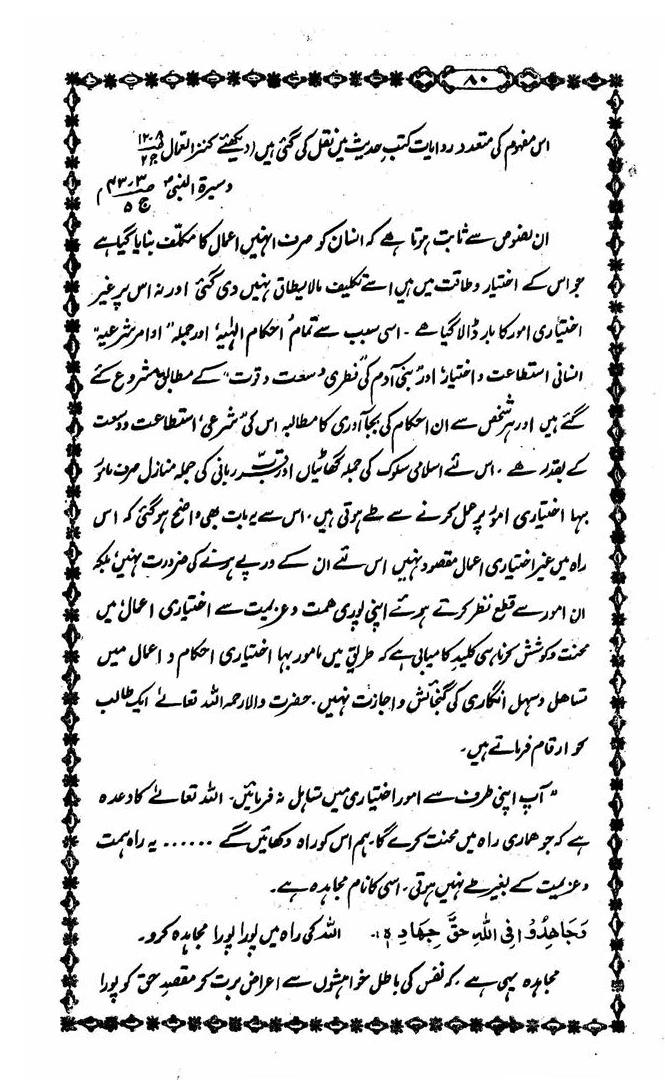 ۸۰
اس مفہوم کی متعدد روایات کتب حدیث میں نقل کی گئی ہیں (دیکھئے کنز العمال ص ۱۳۰۸ ج ۲
و سیرۃ النبیؐ ص ۴۳۰۳ ج ۵ )
ان نصوص سے ثابت ہوتا ہے کہ انسان کو صرف انہیں اعمال کا مکلف بنایا گیا ہے
جو اس کے اختیار و طاقت میں ہیں اسے تکلیف مالایطاق نہیں دی گئی اور نہ اس پر غیر
اختیاری امور کا بار ڈالا گیا ہے ۔ اسی سبب سے تمام احکام الٰہیہ اور جملہ اوامر شرعیہ
انسانی استطاعت و اختیار اور بنی آدم کی فطری وسعت و قوت کے مطابق مشروع کئے
گئے ہیں اور ہر شخص سے ان احکام کی بجا آوری کا مطالبہ اس کی شرعی استطاعت و وسعت
کے بقدر ہے ۔ اس لئے اسلامی سلوک کی جملہ گھاٹیاں اور قرب ربانی کی جملہ منازل صرف مامور
بہا اختیاری امور پر عمل کرنے سے طے ہوتی ہیں ۔ اس سے یہ بات بھی واضح ہو گئی کہ اس
راہ میں غیر اختیاری اعمال مقصود نہیں اس لئے ان کے درپے ہونے کی ضرورت نہیں بلکہ
ان امور سے قطع نظر کرتے ہوئے اپنی پوری ہمت و عزیمت سے اختیاری اعمال میں
محنت و کوشش کرنا ہی کلید کامیابی ہے کہ طریق میں مامور بہا اختیاری احکام و اعمال میں
تساهل و سہل انگاری کی گنجائش و اجازت نہیں ۔ حضرت والا رحمہ اللہ تعالےٰ ایک طالب
کو ارقام فرماتے ہیں ۔
" آپ اپنی طرف سے امور اختیاری میں تساہل نہ فرمائیں ۔ اللہ تعالےٰ کا وعدہ
ہے کہ جو ھماری راہ میں محنت کرے گا ۔ ہم اس کو راہ دکھائیں گے ۔۔۔۔۔۔ یہ راہ ہمت
و عزیمت کے بغیر طے نہیں ہوتی ۔ اسی کا نام مجاہدہ ہے ۔
وَجَاهِدُوْا فِي اللهِ حَقَّ جِهَادِهٖ ۔ اللہ کی راہ میں پورا پورا مجاہدہ کرو ۔
مجاہدہ یہی ہے کہ نفس کی باطل خواہشوں سے اعراض برت کر مقصدِ حق کو پورا